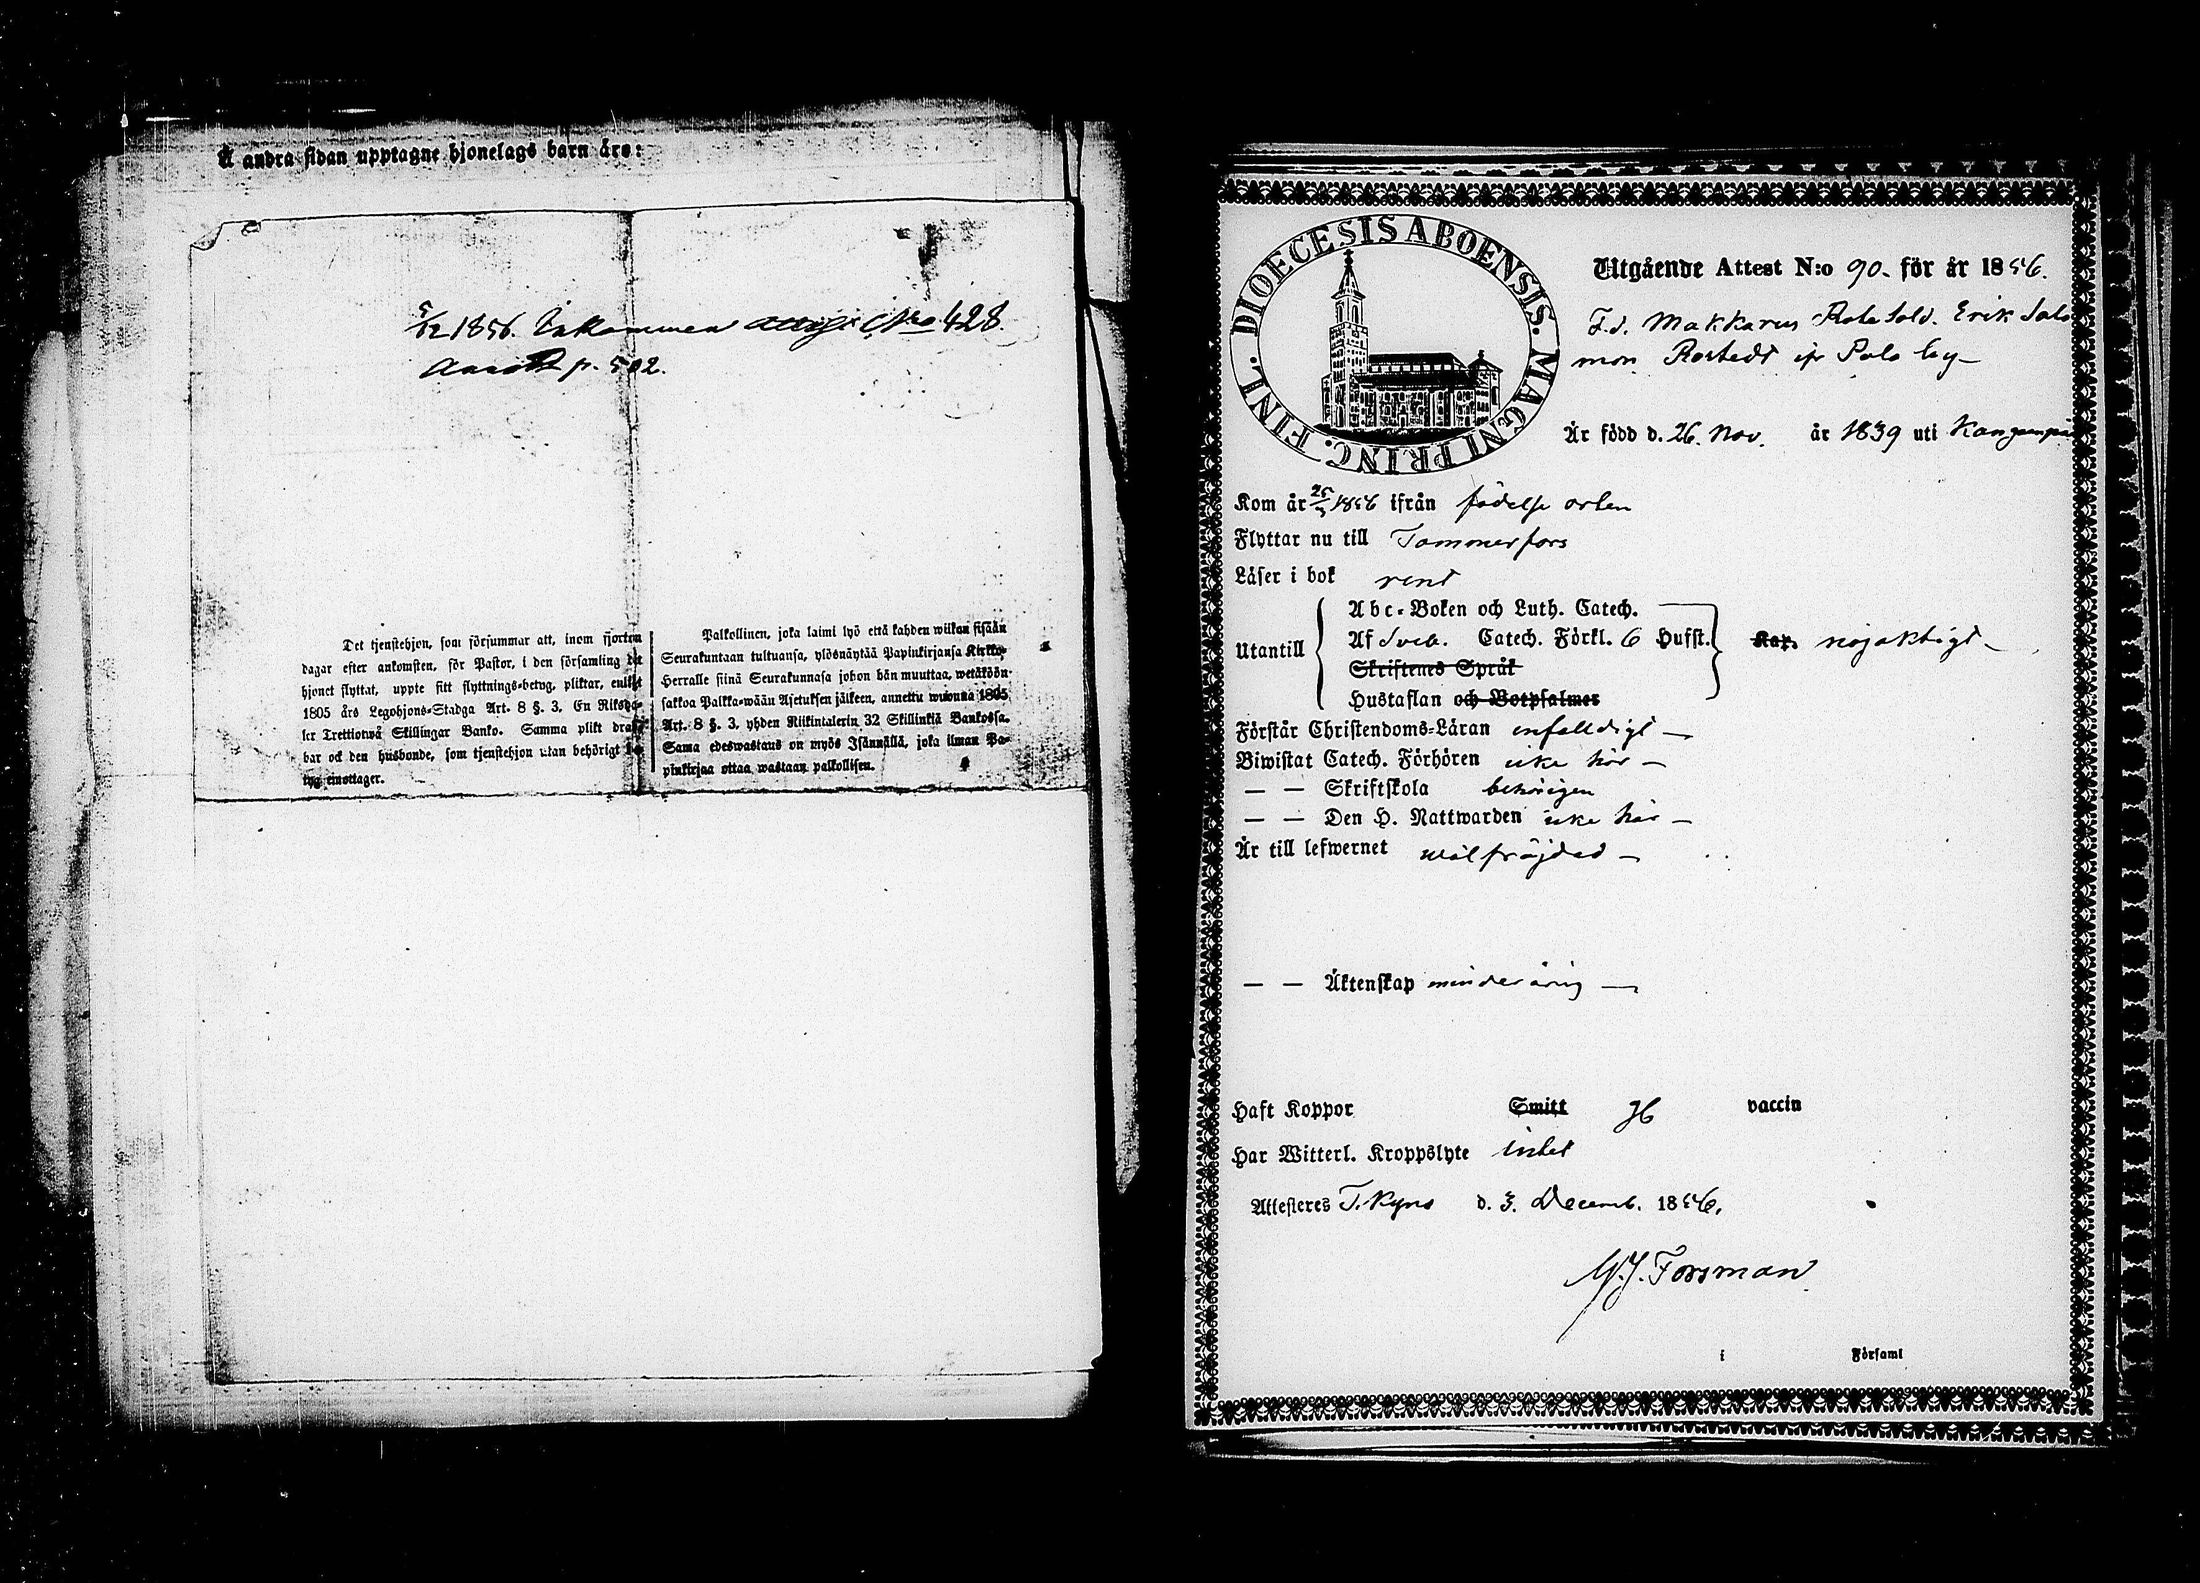 Å andra sidan upptagne hjonelags barn äro:
5/12 1856. Inkommen attest No 428.
p. 502.
Det tjenstehjon, som försummar att, inom fjorton
dagar efter ankomsten, för Pastor, i den församling dit
hjonet flyttat, uppte sitt flyttnings-betyg, pliktar, enligt
1805 års Legohjons-Stadga Art. 8 §. 3, En Riksda-
ler Trettiotwå Skillingar Banko. Samma plikt drab-
bar ock den husbonde, som tjenstehjon utan behörigt be-
tyg emottager.
Palkollinen, joka laimi lyö että kahden wiikon sisään
Seurakuntaan tultuansa, ylösnäytää Papinkirjansa Kirkko-
Herralle siinä Seurakunnasa johon hän muuttaa, wetäköön
sakkoa Palkka-wään Asetuksen jälkeen, annettu wuonna 1805
Art. 8 §. 3. yhden Riikintalerin 32 Skillinkiä Bankossa.
Sama edeswastaus on myös Isännällä, joka ilman Pa-
pinkirjaa ottaa wastaan palkollisen.
DIOECESIS ABOENSIS. MAGNI PRINC. FINL.
Utgående Attest N:o 90. för år 1856.
F.d. Makkarus Rote Sold. Erik Salo
mon Rostedt ifr Palo by
Är född d. 26. Nov. år 1839 uti
Kom år 25/3 1856 ifrån födelse orten
Flyttar nu till Tammerfors
Läser i bok rent
Utantill
Abc-Boken och Luth. Catech.
Af Sveb. Catech. Förkl. 6 Hufst. Kap. nöjaktigt
Skriftenes Språk
Hustaflan och Botpsalmer
Förstår Christendoms-Läran enfalldigt
Biwistat Catech. Förhören icke här
— — Skriftskola behörigen
— — Den H. Nattwarden icke här
Är till lefwernet wälfräjdad
— — Äktenskap minderårig
Haft Koppor Smitt vaccin
Har Witterl. Kroppslyte intet
Attesteres T.Kyro d. 3. Decemb. 1856.
Forsman
i Församl